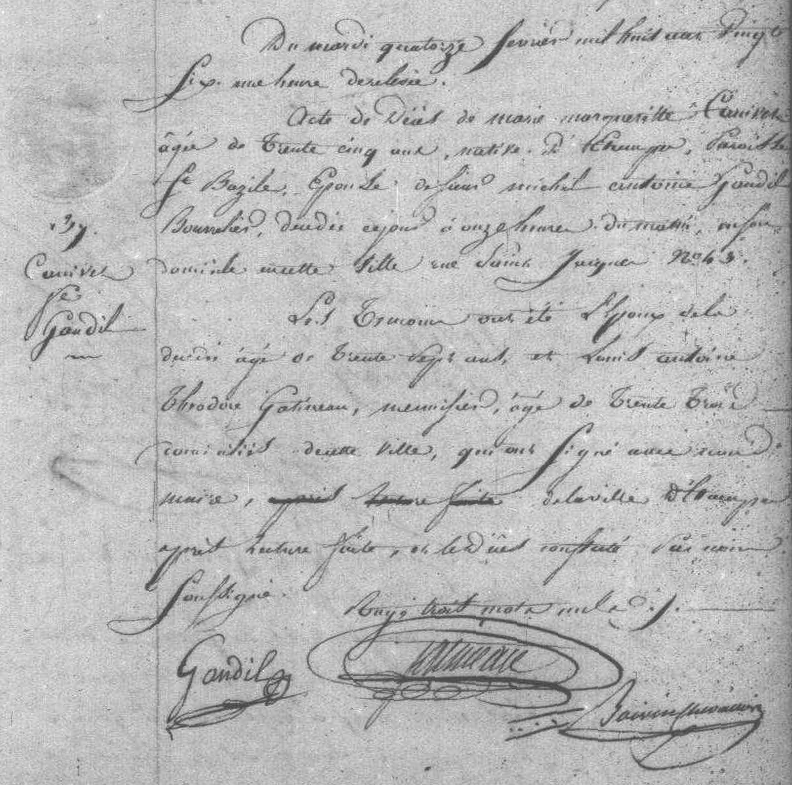 Du mardi quatorze fevrier mil huit cent vingt
Six une heure de relevée.
Acte de Décès de marie margueritte Canivet
âgée de Trente cinq ans, native d'Etampes, Paroisse
St Bazile, Epouse de Sieur michel antoine Gaudil
Bourrelier, decedée cejour à onze heures du matin, en son
37.
domicile en cette Ville rue Saint Jacques No 43.
Canivet
fe
Gaudil
Les Temoins ont été L'Epoux de la
decedée âgé de Trente Sept ans, et Louis antoine
Theodore Gatineau, menuisier, âgé de Trente Trois
domiciliés de cette Ville, qui ont Signé avec nous
maire, après lecture faite de la ville d'Etampes
après lecture faite, et le décès constaté Par nous
Soussigné.
Rayé trois mots nuls ./.
Gaudil
Gatineau